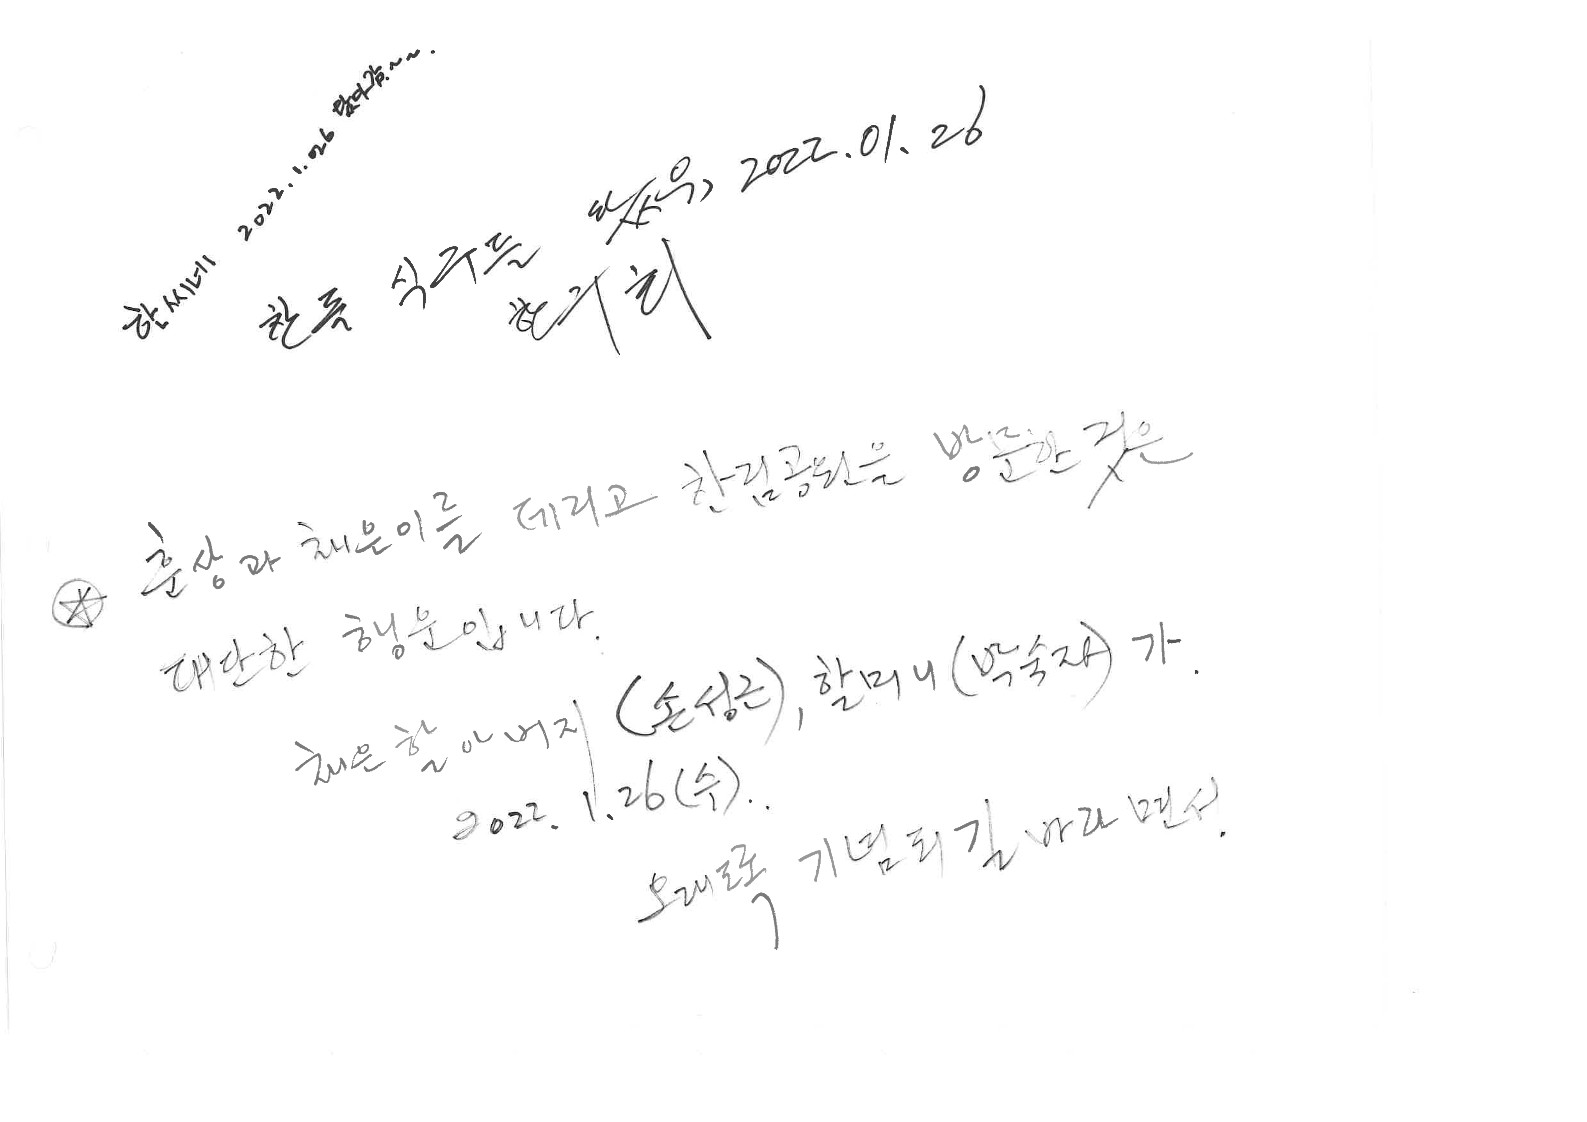 한씨네 2022.1.026
식구들 2022.01.26
훈상과 채은이를 데리고 한림공원을 방문한 것은
대단한 행운입니다.
채은 할아버지 (손성근), 할머니 (박숙자) 가.
2022. 1. 26 (수)..
오래토록 기념되길 바라면서.